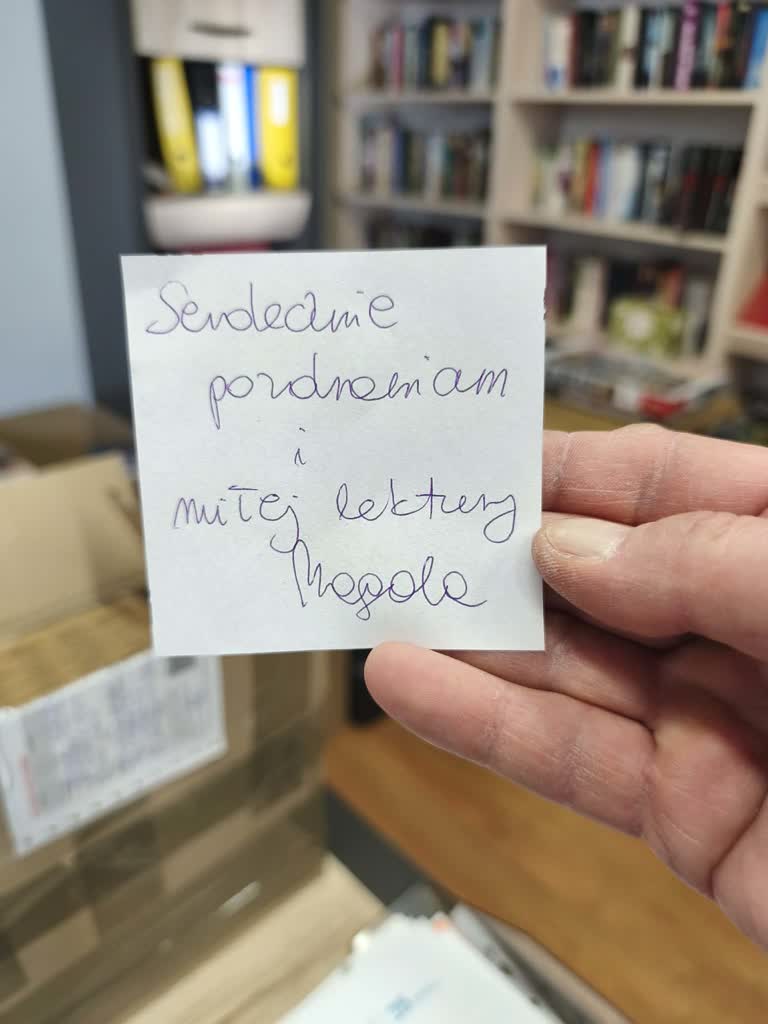 Serdecznie
pozdrawiam
i
miłej lektury
Magda